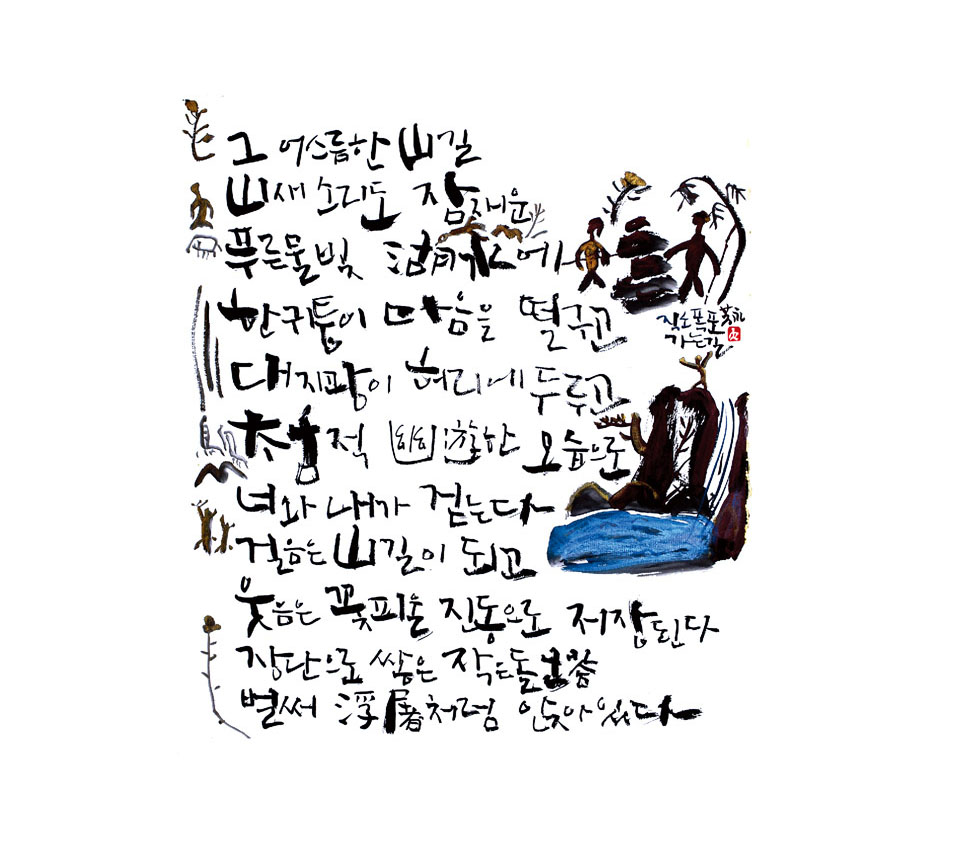 그 어스름한 山길
山새 소리도 잠재운
푸른물빛 에
한귀퉁이 마음을 떨구고
대지팡이 허리에 두루고
적 幽遊한 모습으로
너와 내가 걷는다
걸음은 山길이 되고
웃음은 꽃피운 진동으로 저장된다
장단으로 쌓은 작은돌塔
벌써 浮屠처럼 앉아있다
직소폭포
가는길